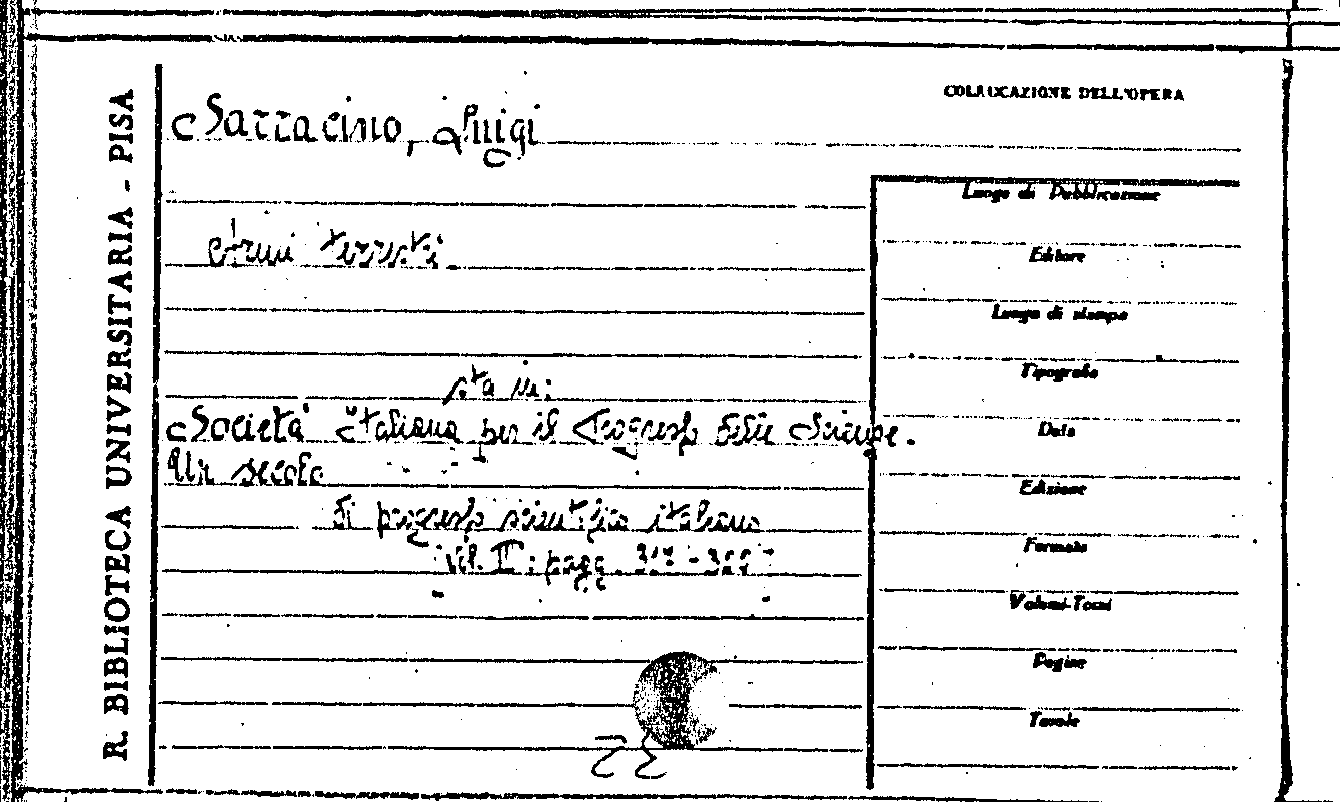 R. BIBLIOTECA UNIVERSITARIA - PISA
COLLOCAZIONE DELL'OPERA
Sarracino, Luigi
Armi terrestri.
sta in:
Società Italiana per il Progresso delle Scienze.
Un secolo
di progresso scientifico italiano
Vol. II: pagg.
Luogo di Pubblicazione
Editore
Luogo di stampa
Tipografo
Data
Edizione
Formato
Volumi-Tomi
Pagine
Tavole